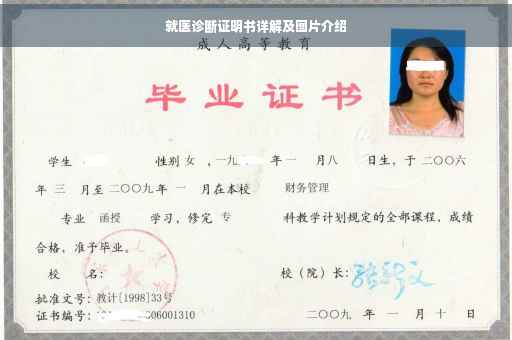 就医诊断证明书详解及图片介绍
成人高等教育
毕业证书
学生 性别 女 ,一九 年 一 月 八 日生,于 二〇〇六
年 三 月至 二〇〇九 年 一 月在本校 财务管理
专业 函授 学习,修完 专 科教学计划规定的全部课程,成绩
合格,准予毕业。
校 名: 校(院)长:
批准文号:教计[1998]33号
证书编号: 06001310 二〇〇九 年 一 月 十 日